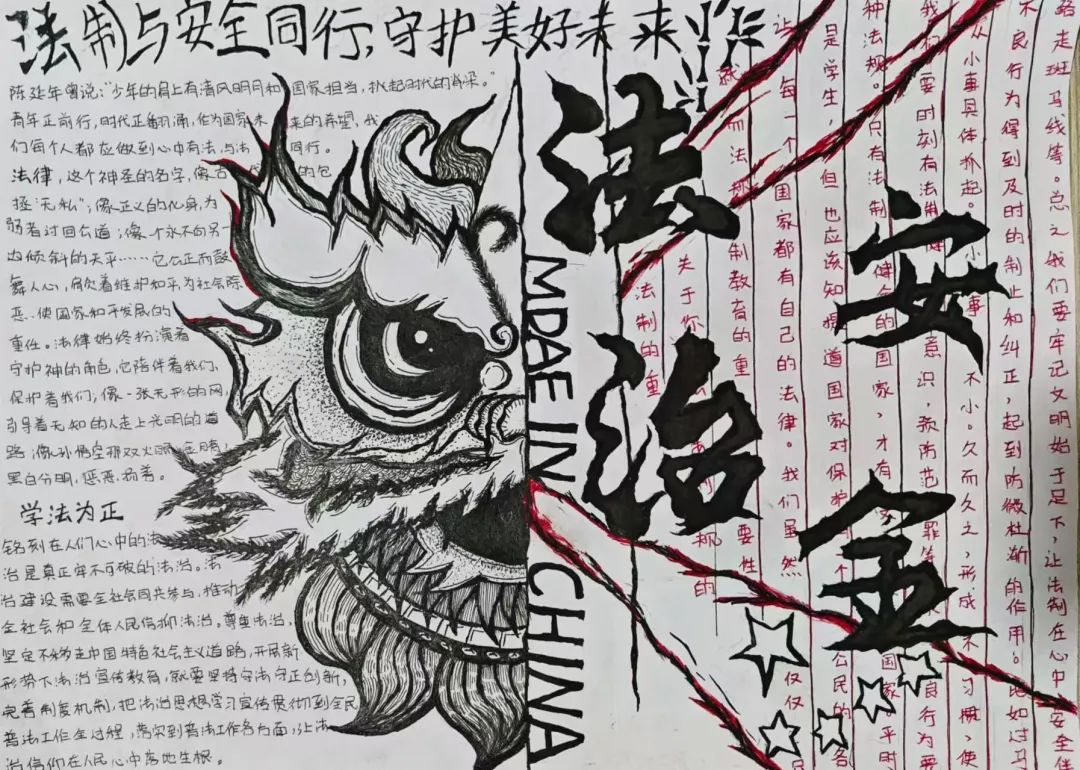 法制与安全同行,守护美好未来
陈延年曾说:"少年的肩上有清风明月和国家担当,扒起时代的脊梁。"
青年正前行,时代正翻涌,作为国家未来的希望,我
们每个人都应做到心中有法,与法同行。
法律,这个神圣的名字,像 的包
拯"无私";像正义的化身,为
弱者讨回公道;像个永不向另一
边倾斜的天平……它公正而鼓
舞人心,肩负着维护和平为社会除
恶、使国家和平发展的
重任。法律始终扮演着
守护神的角色,它陪伴着我们,
保护着我们;像一张无形的网
引导着无知的人走上光明的道
路;像孙悟空那双火眼金睛,
黑白分明,惩恶扬善。
学法为正
铭刻在人们心中的法
治是真正牢不可破的法治。法
治建设需要全社会同共参与,推动
全社会和全体人民信抑法治。尊重法治,
坚定不移走中国特色社会主义道路,开展新
形势下法治宣传教育,就要坚持守法守正创新,
完善制度机制,把法治思想学习宣传贯彻到全民
普法工作全过程,落实到普法工作各方面,让法
治信仰在人民心中落地生根。
MDAE IN CHINA
法治
安全
关于 法制教育的重要性
法制的重
就 而法 称
让 每一个国家都有自己的法律。我们虽然
是学生,但也应该知道国家对保护 个公民的各
种法规。只有法制健全的国家,才有
我们要时刻有法制 意识,预防范罪等 良行为要
从小事具体抓起。小事不小。久而久之,形成不 习惯,使
不良行为得到及时的制止和纠正,起到防微杜渐的作用。比如过马
路走斑马线等。总之我们要牢记文明始于足下,让法制在心中安全伴